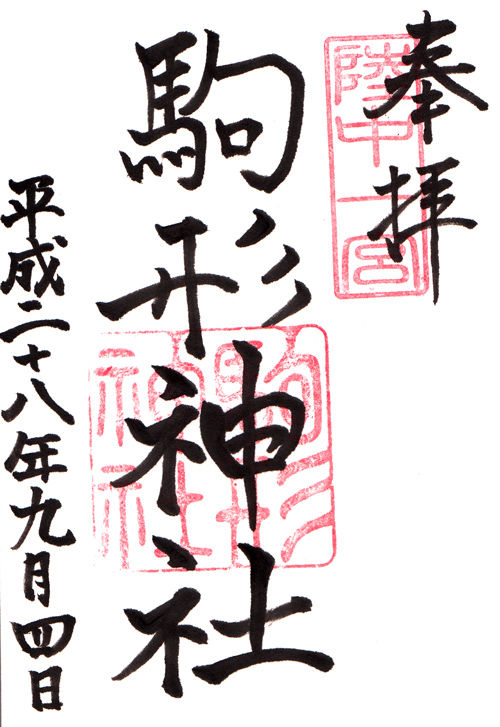 奉拝
陸中一宮
駒形神社
駒形
神社
平成二十八年九月四日